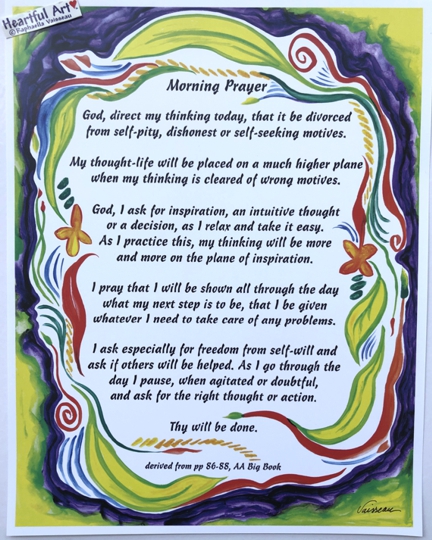 Heartful Art
©Raphaella Vaisseau
Morning Prayer
God, direct my thinking today, that it be divorced
from self-pity, dishonest or self-seeking motives.
My thought-life will be placed on a much higher plane
when my thinking is cleared of wrong motives.
God, I ask for inspiration, an intuitive thought
or a decision, as I relax and take it easy.
As I practice this, my thinking will be more
and more on the plane of inspiration.
I pray that I will be shown all through the day
what my next step is to be, that I be given
whatever I need to take care of any problems.
I ask especially for freedom from self-will and
ask if others will be helped. As I go through the
day I pause, when agitated or doubtful,
and ask for the right thought or action.
Thy will be done.
derived from pp 86-88, AA Big Book
Vaisseau